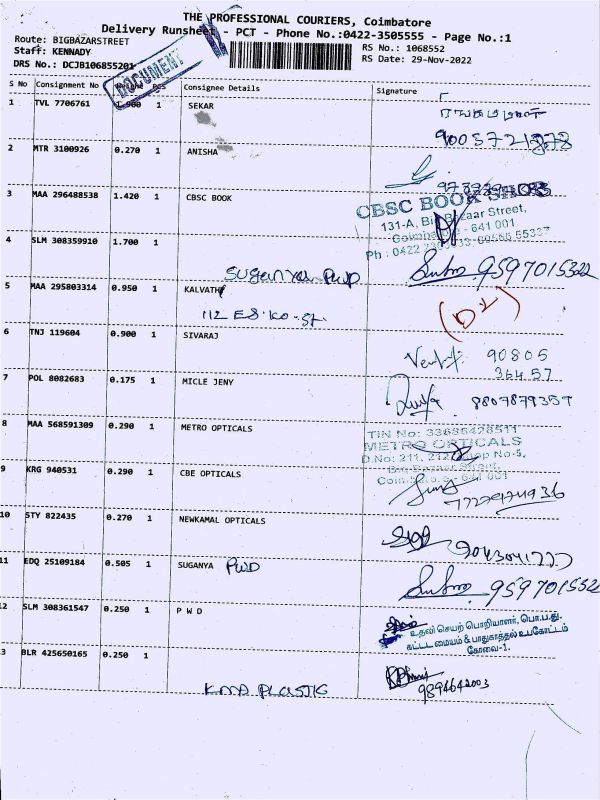 THE PROFESSIONAL COURIERS, Coimbatore
Delivery Runsheet - PCT - Phone No.:0422-3505555 - Page No.:1
Route: BIGBAZARSTREET
RS No.: 1068552
Staff: KENNADY
RS Date: 29-Nov-2022
DRS No.: DCJB106855201
DOCUMENT
S No Consignment No Weight Pcs Consignee Details Signature
1 TVL 7706761 1.900 1 SEKAR
2 MTR 3100926 0.270 1 ANISHA
3 MAA 296488538 1.420 1 CBSC BOOK
CBSC BOOK
131-A, Big Bazaar Street,
641 001
4 SLM 308359910 1.700 1
Suganya PWD 9597015322
5 MAA 295803314 0.950 1 KALVATHY
112 ES.KO.St.
(D2)
6 TNJ 119604 0.900 1 SIVARAJ
90805
36457
7 POL 8082683 0.175 1 MICLE JENY
8807879357
8 MAA 568591309 0.290 1 METRO OPTICALS
TIN No: 33686428511
METRO OPTICALS
D.No: 211, 212, Shop No-5,
Big Bazaar Street,
641 001
9 KRG 940531 0.290 1 CBE OPTICALS
10 STY 822435 0.270 1 NEWKAMAL OPTICALS
11 EDQ 25109184 0.505 1 SUGANYA PWD
12 SLM 308361547 0.250 1 P W D
உதவி செயற் பொறியாளர், பொ.ப.து.
கட்டட மையம் & பாதுகாத்தல் உபகோட்டம்
கோவை-1.
13 BLR 425650165 0.250 1
KMA PLASTIC
9894642003